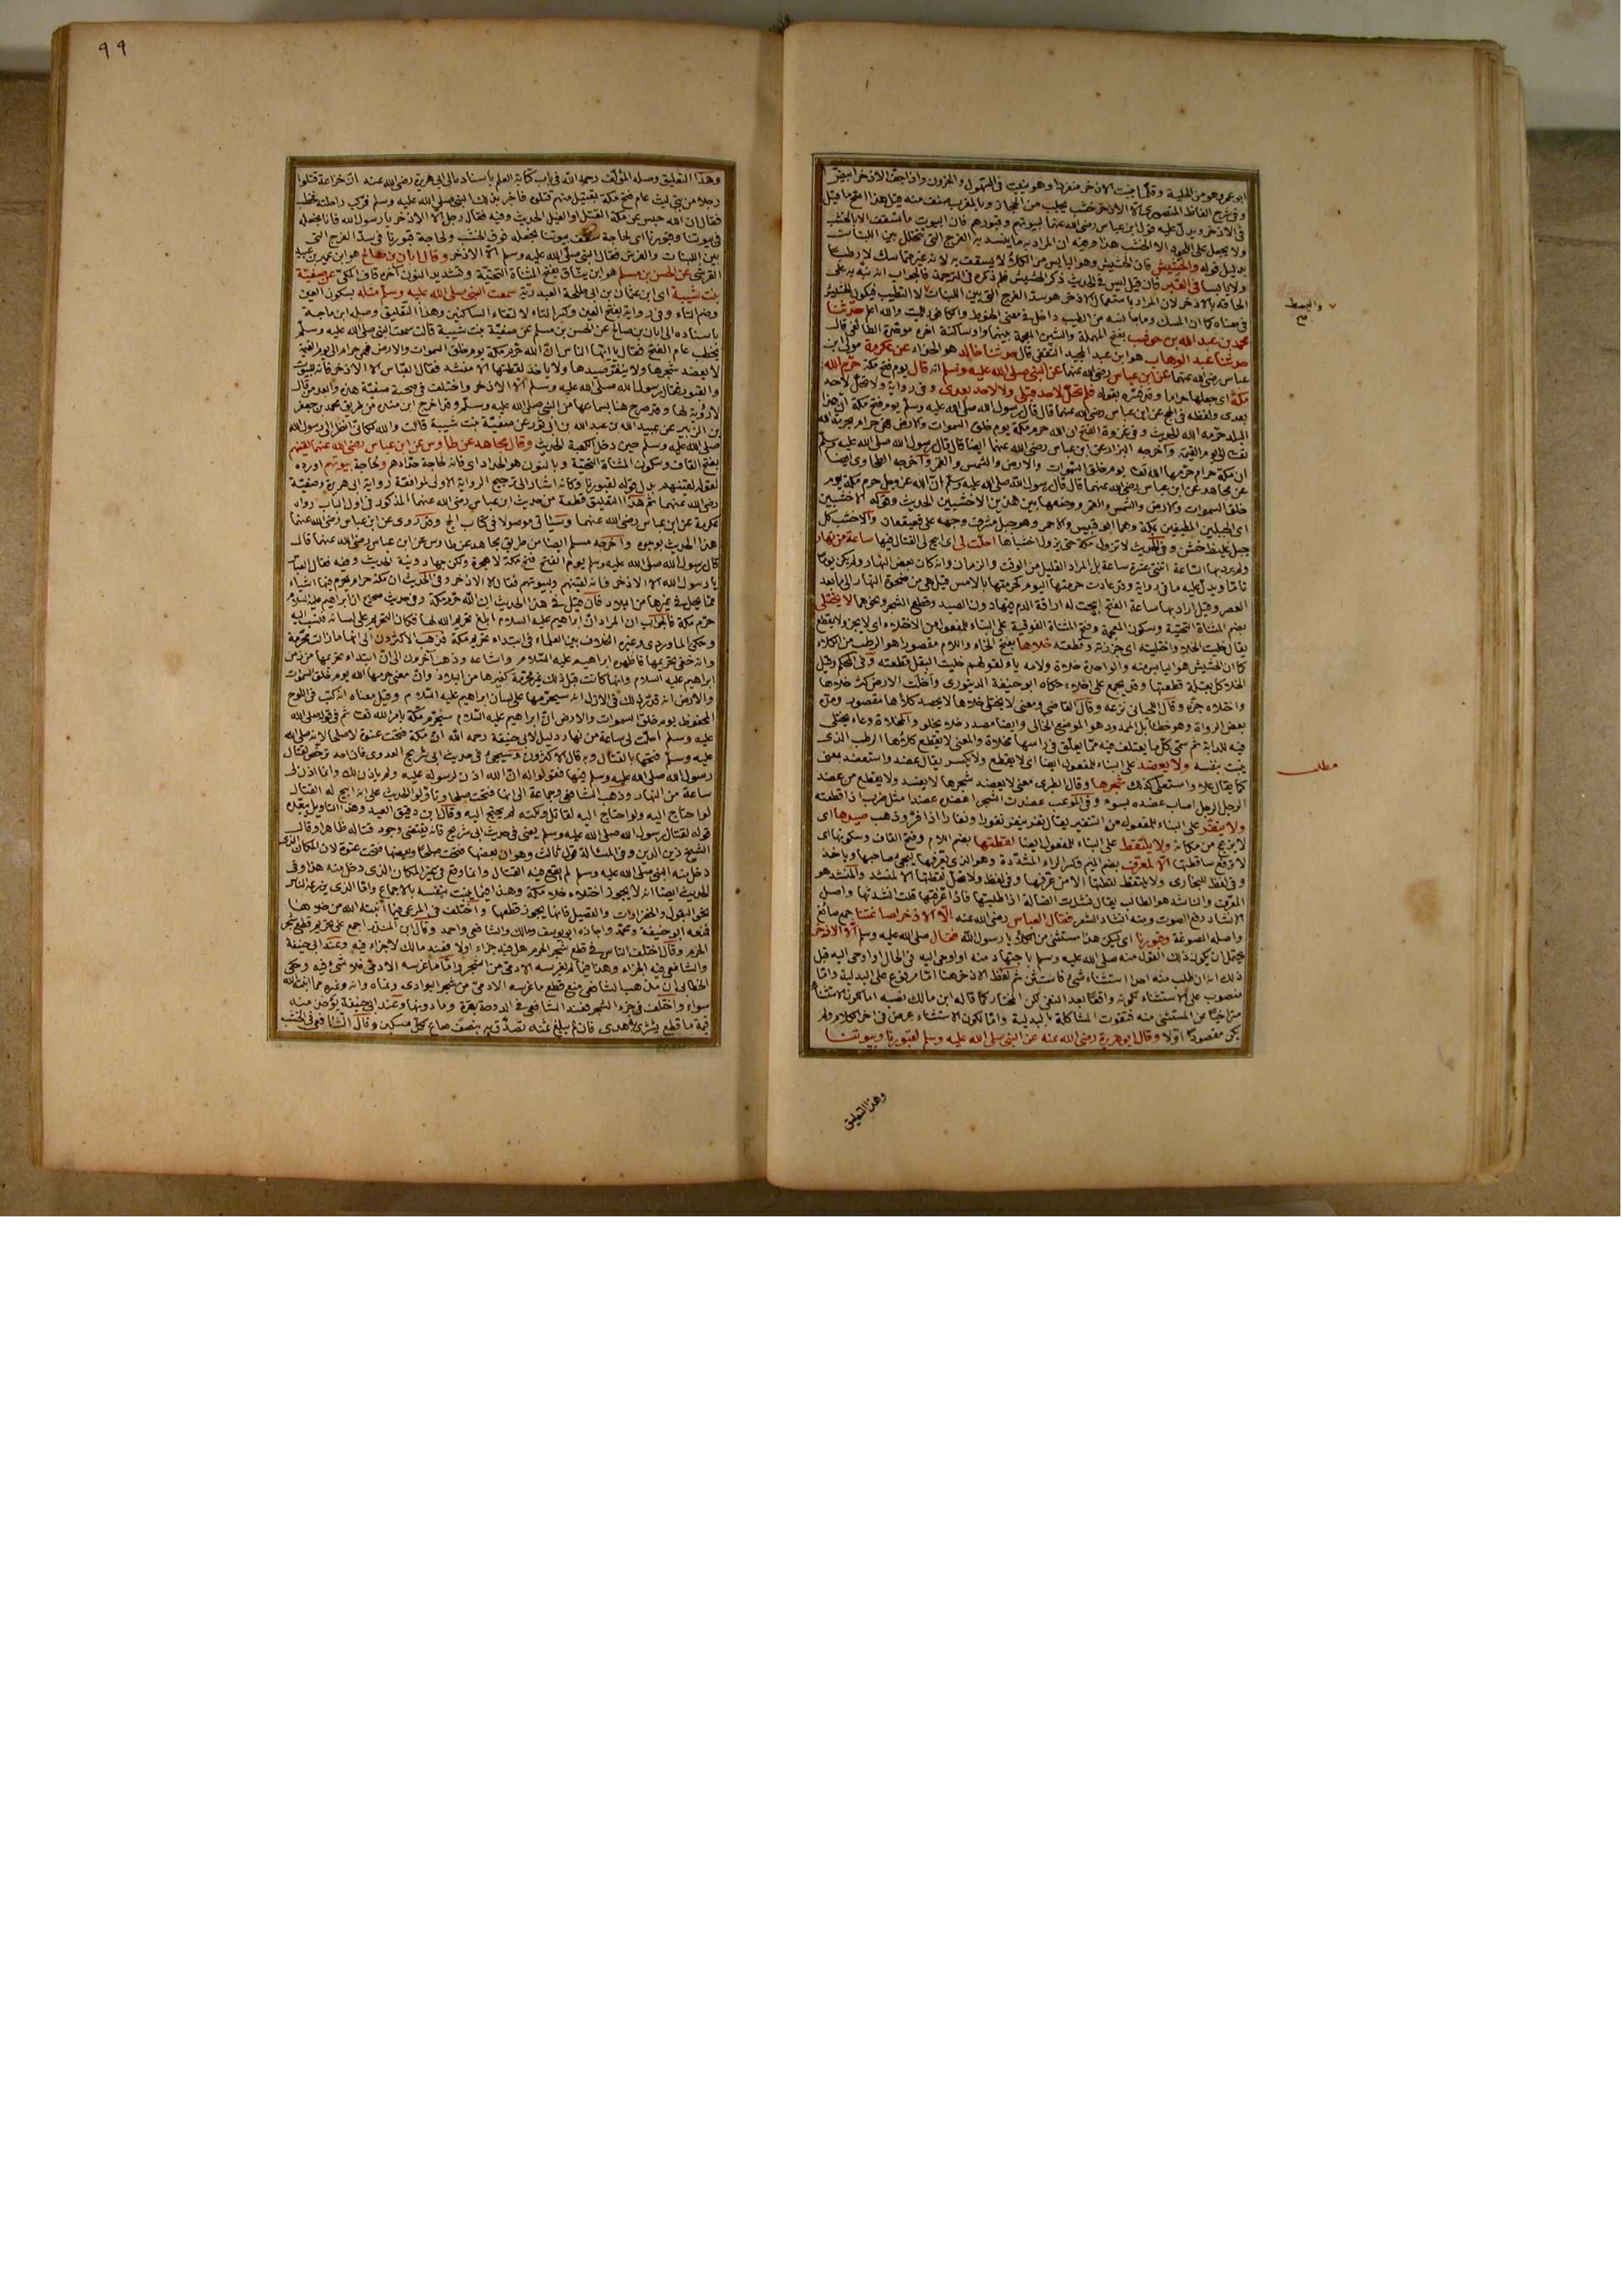 ابو عمر وهو من الحلبة وقلما ينبت الاذخر منفردا وهو ينبت في السهول والحزون واذا جف الاذخر ابيض
وفي شرح الفاظ المنصوري الاذخر خشب يجلب من الحجاز وبالمغرب صنف منه قيل هذا اصح ما قيل
في الاذخر ويدل عليه قول ابن عباس رضي الله عنهما لبيوتهم وقبورهم فان البيوت ما تسقف الا بالخشب
ولا يحمل على العهود الا الخشب هذا وفيه ان المراد به ما ينسد به الفرج التي تتخلل بين اللبنات
بدليل قوله والحشيش فان الحشيش وهو اليابس من الكلأ لا يسقف به لانه غير متماسك لا رطبا
ولا يابسا في القبر فان قيل ليس في الحديث ذكر الحشيش فلم ذكره في الترجمة فالجواب انه نبه به على
الحاقه بالاذخر لان المراد باستعمال الاذخر هو سد الفرج التي بين اللبنات لا التطيب فيكون الحشيش
في معناه كما ان المسك وما جانسه من الطيب داخل في معنى الحنوط والكافور للميت والله اعلم حدثنا
محمد بن عبد الله بن حوشب بفتح المهملة والشين المعجمة بينهما واو ساكنة اخره موحدة الطائفي قال
حدثنا عبد الوهاب هو ابن عبد المجيد الثقفي قال حدثنا خالد هو الحذاء عن عكرمة مولى ابن
عباس رضي الله عنهما عن ابن عباس رضي الله عنهما عن النبي صلى الله عليه وسلم انه قال يوم فتح مكة حرم الله
مكة اي جعلها حراما وقد فسره بقوله فلم تحل لاحد قبلي ولا لاحد بعدي وفي رواية ولا تحل لاحد
بعدي ولفظه في الحج عن ابن عباس رضي الله عنهما قال قال رسول الله صلى الله عليه وسلم يوم فتح مكة ان هذا
البلد حرمه الله الحديث وفي غزوة الفتح ان الله حرم مكة يوم خلق السموات والارض فهي حرام بحرمة الله
تعالى الى يوم القيمة واخرجه البزار عن ابن عباس رضي الله عنهما ايضا قال قال رسول الله صلى الله عليه وسلم
ان مكة حرام حرمها الله تعالى يوم خلق السموات والارض والشمس والقمر واخرجه الطحاوي ايضا
عن مجاهد عن ابن عباس رضي الله عنهما قال قال رسول الله صلى الله عليه وسلم ان الله عز وجل حرم مكة يوم
خلق السموات والارض والشمس والقمر ووضعها بين هذين الاخشبين الحديث وقوله الاخشبين
اي الجبلين المطيفين بمكة وهما ابو قبيس والاحمر وهو جبل مشرف وجهه على قعيقعان والاخشب كل
جبل غليظ خشن وفي الحديث لا تزول مكة حتى يزول اخشباها احلت لي اي ابيح لي القتال فيها ساعة من نهار
ولم يرد بها الساعة اثنتي عشرة ساعة بل المراد القليل من الوقت والزمان وانه كان بعض النهار ولم يكن يوما
تاما ويدل عليه ما في رواية وقد عادت حرمتها اليوم كحرمتها بالامس قيل هي من ضحوة النهار الى ما بعد
العصر وقيل اراد بها ساعة الفتح ابيحت له اراقة الدم فيها دون الصيد وقطع الشجر ونحوهما لا يختلى
بضم المثناة التحتية وسكون المعجمة وفتح المثناة الفوقية على البناء للمفعول من الاختلاء اي لا يجز ولا يقطع
يقال خليت الخلا واختليته اي جززته وقطعته خلاها بفتح الخاء واللام مقصورا هو الرطب من الكلاء
كما ان الحشيش هو اليابس منه والواحدة خلاة ولامه ياء لقولهم خليت البقل قطعته وفي المحكم وقيل
الخلا كل بقلة قطعتها وقد يجمع على اخلاء حكاه ابو حنيفة الدينوري واخلت الارض كثر خلاها
واختلاه جزه وقال اللحياني نزعه وقال القاضي ومعنى لا يختلى خلاها لا يحصد كلأها مقصور ومده
بعض الرواة وهو خطأ بل الممدود هو الموضع الخالي وايضا مصدر خلا يخلو والمخلاة وعاء يختلى
فيه للدابة ثم سمى كل ما يعتلف فيه مما يعلق في راسها مخلاة والمعنى لا يقطع كلأها الرطب الذي
ينبت بنفسه ولا يعضد على البناء للمفعول ايضا اي لا يقطع ولا يكسر يقال عضد واستعضد بمعنى
كما يقال علا واستعلى كذلك شجرها وقال الطبري معنى لا يعضد شجرها لا يفسد ولا يقطع من عضد
الرجل الرجل اصاب عضده بسوء وفي الموعب عضدت الشجر اعضده عضدا مثل ضرب اذا قطعته
ولا ينفر على البناء للمفعول من التنفير يقال نفر ينفر نفورا ونفارا اذا فر وذهب صيدها اي
لا يزعج من مكانه ولا يلتقط على البناء للمفعول ايضا لقطتها بضم اللام وفتح القاف وسكونها اي
لا ترفع ساقطتها الا لمعرف بضم الميم وكسر الراء المشددة وهو الذي يعرفها ليجئ صاحبها وياخذ
وفي لفظ للبخاري ولا يلتقط لقطتها الا من عرفها وفي لفظ ولا تحل لقطتها الا لمنشد والمنشد هو
المعرف والناشد هو الطالب يقال نشدت الضالة اذا طلبتها فاذا عرفتها قلت انشدتها واصل
الانشاد رفع الصوت ومنه انشاد الشعر فقال العباس رضي الله عنه الا الاذخر لصاغتنا جمع صائغ
واصله الصوغة وقبورنا اي ليكن هذا مستثنى من الكلأ يا رسول الله فقال صلى الله عليه وسلم الا الاذخر
يحتمل ان يكون ذلك القول منه صلى الله عليه وسلم باجتهاد منه او اوحي اليه في الحال او اوحي اليه قبل
ذلك انه ان طلب منه احد استثناء شئ فاستثن ثم لفظ الاذخر هنا اما مرفوع على البدلية واما
منصوب على الاستثناء لكونه واقعا بعد النفي لكن المختار كما قاله ابن مالك نصبه اما لكون الاستثناء
متراخيا عن المستثنى منه فتفوت المشاكلة بالبدلية واما لكون الاستثناء عرض في اخر الكلام ولم
يكن مقصودا اولا وقال ابو هريرة رضي الله عنه عن النبي صلى الله عليه وسلم لقبورنا وبيوتنا
مطلب
وهذا التعليق
٩٩
وهذا التعليق وصله المؤلف رحمه الله في باب كتابة العلم باسناده الى ابي هريرة رضي الله عنه ان خزاعة قتلوا
رجلا من بني ليث عام فتح مكة بقتيل منهم قتلوه فاخبر بذلك النبي صلى الله عليه وسلم فركب راحلته فخطب
فقال ان الله حبس عن مكة القتل او الفيل الحديث وفيه فقال رجل الا الاذخر يا رسول الله فانا نجعله
في بيوتنا وقبورنا اي لحاجة سقف بيوتنا نجعله فوق الخشب ولحاجة قبورنا في سد الفرج التي
بين اللبنات والفرش فقال النبي صلى الله عليه وسلم الا الاذخر وقال ابان بن صالح هو ابن عمير بن عبيد
القرشي عن الحسن بن مسلم هو ابن يناق بفتح المثناة التحتية وتشديد النون آخره قاف المكي عن صفية
بنت شيبة اي ابن عثمان بن ابي طلحة العبدرية سمعت النبي صلى الله عليه وسلم مثله بسكون العين
وضم التاء وفي رواية بفتح العين وكسر التاء لالتقاء الساكنين وهذا التعليق وصله ابن ماجة
باسناده الى ابان بن صالح عن الحسن بن مسلم عن صفية بنت شيبة قالت سمعت النبي صلى الله عليه وسلم
يخطب عام الفتح فقال يا ايها الناس ان الله حرم مكة يوم خلق السموات والارض فهي حرام الى يوم القيمة
لا يعضد شجرها ولا ينفر صيدها ولا ياخذ لقطتها الا منشد فقال العباس الا الاذخر فانه للبيوت
والقبور فقال رسول الله صلى الله عليه وسلم الا الاذخر واختلف في صحبة صفية هذه وابعد من قال
لا رؤية لها وقد صرح هنا بسماعها من النبي صلى الله عليه وسلم وقد اخرج ابن منده من طريق محمد بن جعفر
بن الزبير عن عبيد الله بن عبد الله بن ابي ثور عن صفية بنت شيبة قالت والله لكأني انظر الى رسول الله
صلى الله عليه وسلم حين دخل الكعبة الحديث وقال مجاهد عن طاوس عن ابن عباس رضي الله عنهما لقينهم
بفتح القاف وسكون المثناة التحتية وبالنون هو الحداد اي فانه لحاجة حدادهم ولحاجة بيوتهم اورده
لقوله لقينهم بدل قوله لقبورنا وكأنه اشار الى ترجيح الرواية الاولى لموافقة رواية ابي هريرة وصفية
رضي الله عنهما ثم هذا التعليق قطعة من حديث ابن عباس رضي الله عنهما المذكور في اول الباب رواه
عكرمة عن ابن عباس رضي الله عنهما وسيأتي موصولا في كتاب الحج وقد روى عن ابن عباس رضي الله عنهما
هذا الحديث بوجوه واخرجه مسلم ايضا من طريق مجاهد عن طاوس عن ابن عباس رضي الله عنهما قال
قال رسول الله صلى الله عليه وسلم يوم الفتح فتح مكة لا هجرة ولكن جهاد ونية الحديث وفيه فقال العباس
يا رسول الله الا الاذخر فانه لقينهم ولبيوتهم فقال الا الاذخر وفي الحديث ان مكة حرام يحرم فيها اشياء
مما يحل في غيرها من البلاد فان قيل في هذا الحديث ان الله حرم مكة وفي حديث صحيح ان ابراهيم عليه السلام
حرم مكة فالجواب ان المراد ان ابراهيم عليه السلام ابلغ تحريم الله لها فكان التحريم على لسانه فنسب اليه
وحكى الماوردي وغيره الخلاف بين العلماء في ابتداء تحريم مكة فذهب الاكثرون الى انها ما زالت محرمة
وانه خفي تحريمها فاظهره ابراهيم عليه السلام واشاعه وذهب آخرون الى ان ابتداء تحريمها من زمن
ابراهيم عليه السلام وانها كانت قبل ذلك غير محرمة كغيرها من البلاد وان معنى حرمها الله يوم خلق السموات
والارض انه قدر ذلك في الازل انه سيحرمها على لسان ابراهيم عليه السلام وقيل معناه انه كتب في اللوح
المحفوظ يوم خلق السموات والارض ان ابراهيم عليه السلام سيحرم مكة بامر الله تعالى ثم في قوله صلى الله
عليه وسلم احلت لي ساعة من نهار دليل لابي حنيفة رحمه الله ان مكة فتحت عنوة لا صلحا لانه صلى الله
عليه وسلم فتحها بالقتال وبه قال الاكثرون وسيجئ في حديث ابي شريح العدوي فان احد ترخص لقتال
رسول الله صلى الله عليه وسلم فيها فقولوا له ان الله اذن لرسوله عليه ولم ياذن لك وانما اذن لي
ساعة من النهار وذهب الشافعي وجماعة الى انها فتحت صلحا وتاولوا الحديث على انه ابيح له القتال
لو احتاج اليه ولو احتاج اليه لقاتل ولكنه لم يحتج اليه وقال ابن دقيق العيد وهذا التاويل يبعده
قوله لقتال رسول الله صلى الله عليه وسلم يعني في حديث ابي شريح فانه يقتضي وجود قتاله ظاهرا وقال
الشيخ زين الدين وفي المسئلة قول ثالث وهو ان بعضها فتحت صلحا وبعضها فتحت عنوة لان المكان الذي
دخل منه النبي صلى الله عليه وسلم لم يقع فيه القتال وانما وقع في غير المكان الذي دخل منه هذا وفي
الحديث ايضا انه لا يجوز اختلاء خلاء مكة وهذا فيما ينبت بنفسه بالاجماع واما الذي يزرعه الناس
نحو البقول والخضراوات والفصيل فانها يجوز قطعها واختلف في الرعي فيما انبته الله من خلاها
فمنعه ابو حنيفة ومحمد واجازه ابو يوسف ومالك والشافعي واحمد وقال ابن المنذر اجمع على تحريم قطع شجر
الحرم وقال اختلف الناس في قطع شجر الحرم هل فيه جزاء اولا فعند مالك لا جزاء فيه وعند ابي حنيفة
والشافعي فيه الجزاء وهذا فيما لم يغرسه الادمي من الشجر واما ما غرسه الادمي فلا شئ فيه وحكى
الخطابي ان مذهب الشافعي منع قطع ما غرسه الادمي من شجر البوادي ونماه وانه وغيره مما انبته الله
سواء واختلف في جزء الشجر فعند الشافعي في الدوحة بقرة وما دونها وعند ابي حنيفة يؤخذ منه
قيمة ما قطع يشترى به هدي فان لم يبلغ ثمنه تصدق به بنصف صاع لكل مسكين وقال الشافعي في الخشب